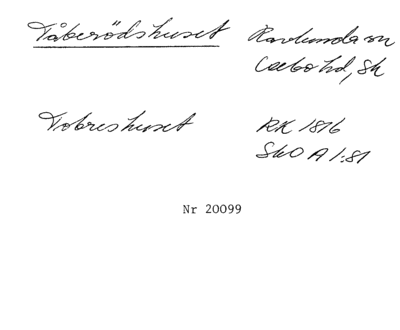 Tåberödshuset Ravlunda sn
Albo hd, Sk
Tobreshuset RK 1816
SkO A 1:81
Nr 20099